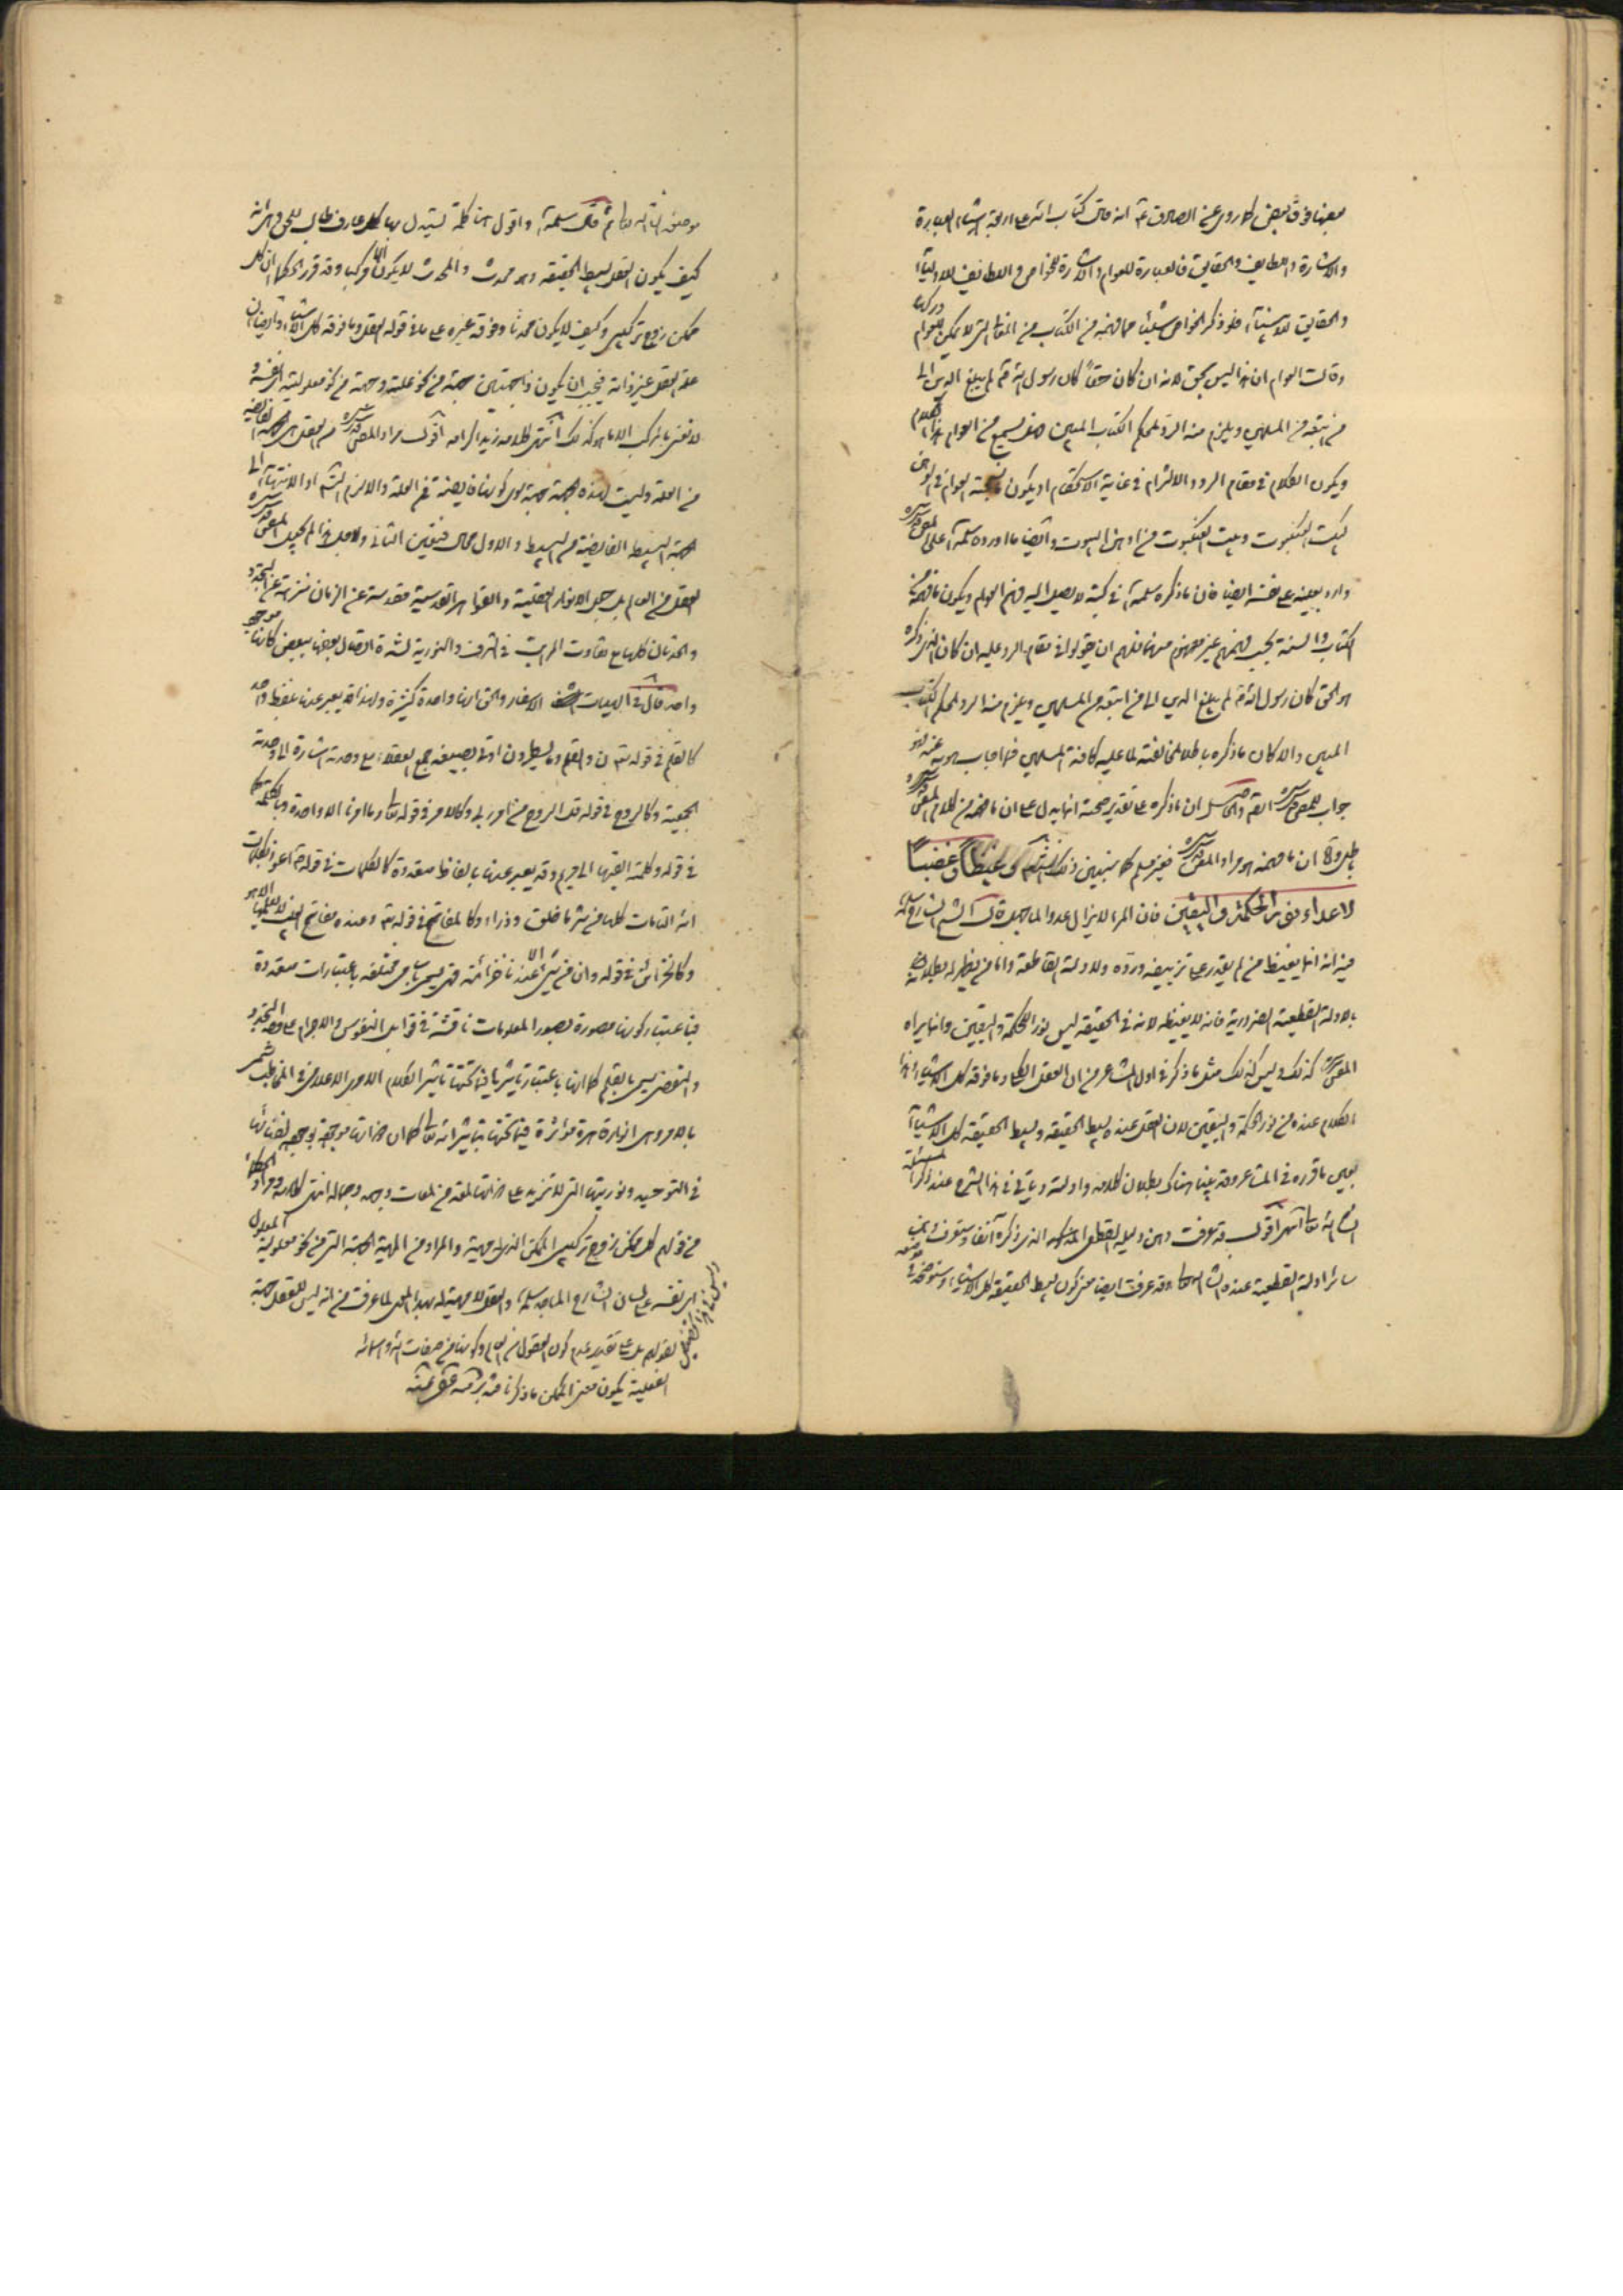 بعضها فوق بعض كما روى عن الصادق انه قال كتاب الله على اربعة اشياء العبارة
والاشارة واللطايف والحقايق فالعبارة للعوام والاشارة للخواص واللطايف للاولياء
والحقايق للانبياء فلو ذكر الخواص شيئا مما فهمه من الكتاب من التى لا يمكن للعوام دركها
وقالت العوام ان هذا ليس بحق لانه ان كان حقا كان رسول الله لم يبلغ الدين الى
من اتبعه من المسلمين ويلزم منه الرد لمحكم الكتاب المبين فهل يسمع من العوام هذا الكلام
ويكون الكلام فى مقام الرد والالزام فى غاية الاستحكام او يكون العوام فى
كبيت العنكبوت وبيت العنكبوت من اوهن البيوت وايضا ما اورده سلمه الله على المص قدس سره
وارد بعينه على نفسه ايضا فان ما ذكره سلمه الله فى كتبه لا يصل اليه فهم العوام ويكون ما فهمه من
الكتاب والسنة بحسب فهمهم غير مفهوم منهما فلهم ان يقولوا فى مقام الرد عليه ان كان الذى ذكره
هو الحق كان رسول الله لم يبلغ الدين الى من اتبعه من المسلمين ويلزم منه الرد لمحكم الكتاب
المبين والا كان ما ذكره باطلا لمخالفته لما عليه كافة المسلمين فما اجاب به عنه فهو
جواب المص قدس سره والحاصل ان ما ذكره على تقدير صحته انما يدل على ان ما فهمه من كلام المص قدس سره
باطل واما ان ما فهمه هو مراد المص قدس سره فغير مسلم كما سنبين ذلك غيظا وغضبا
لاعداء نور الحكمة واليقين فان المرء لا يزال عدوا لما جهله قال الشارح سلمه الله
فيه انه انما يغيظ من لم يقدر على تزييفه ورده والادلة القاطعة واما من يظهر له بطلانه
بالادلة القطعية الضرورية فانه لا يغيظه لانه فى الحقيقة ليس نور الحكمة واليقين وانما يراه
المص كذلك وليس كذلك مثل ما ذكر فى اول المشاعر من ان العقل الكلى وما فوقه كل الاشياء وهذا
الكلام عنده من نور الحكمة واليقين لان العقل عنده بسيط الحقيقة وبسيط الحقيقة كل الاشياء
يعنى ما قرره فى المشاعر وقد بينا هناك بطلان كلامه وادلته وياتى فى هذا الشرح عند ذكر المسئلة
انشاء الله تعالى انتهى اقول قد عرفت وهن دليله القطعى الذى ذكره آنفا وستعرف
سائر ادلته القطعية عنده انشاء الله تعالى وقد عرفت ايضا معنى كون بسيط الحقيقة كل الاشياء وستوضحه فى موضعه
موضعه انشاء الله تعالى ثم قال سلمه الله واقول هنا كلمة يستدل بها كل عارف طالب للحق وهى انه
كيف يكون العقل بسيط الحقيقة وهو محدث والمحدث لا يكون الا مركبا وقد قرر الحكماء ان كل
ممكن زوج تركيبى وكيف لا يكون محدثا وفوقه غيره على ما فى قوله العقل وما فوقه كل الاشياء وايضا ان
علة العقل غير ذاته فيجب ان يكون ذا جهتين جهة من نحو علته وجهة من نحو معلوليته اى نفسه و
لا نعنى بالمركب الا ما هو كذلك انتهى كلامه زيد اكرامه اقول مراد المص قدس سره من العقل هى الجهة الفايضة
من العلة وليست لهذه الجهة جهة سوى كونها فايضة من العلة والا لزم التسلسل او الانتهاء الى
جهة البسيط الفايضة من البسيط والاول محال فتعين الثانى ولاجل ذا لم يجعل المص قدس سره
العقل من العالم بل جعل الانوار العقلية والقواهر القدسية مقدسة عن الزمان منزهة عن التجدد
والحدثان كلها مع تفاوت المراتب فى الشرف والنورية لشدة اتصال بعضها ببعض كانها موجود
واحد قال فى الهيات الاسفار والحق انها واحدة كثيرة ولهذا قد يعبر عنها بلفظ واحد
كالقلم فى قوله تعالى ن والقلم وما يسطرون اوتى بصيغة جمع العقلاء مع وحدته اشارة الى وحدته
الجمعية وكالروح فى قوله قل الروح من امر ربى وكالامر فى قوله تعالى وما امرنا الا واحدة وكالكلمة
فى قوله وكلمته القيها الى مريم وقد يعبر عنها بالفاظ متعددة كالكلمات فى قوله اعوذ بكلمات
الله التامات كلها من شر ما خلق وذراء وكالمفاتح فى قوله تعالى وعنده مفاتح الغيب لا يعلمها الا هو
وكالخزائن فى قوله وان من شئ الا عندنا خزائنه فهى يسمى باسامى مختلفة باعتبارات متعددة
فباعتبار كونها مصورة بصور المعلومات ناقشة فى قوابل النفوس والاجرام على وجه التجدد
والتقضى يسمى بالقلم كما انها باعتبار تاثيرها فيما تحتها تاثير الكلام الامرى الاعلامى فى المخاطب تسمى
بالامر وهى انوار قاهرة مؤثرة فيما تحتها بتاثير الله تعالى كما ان ذواتها موجودة بوجوده لفنائها
فى التوحيد ونوريتها التى لا تزيد على ذواتها لمعة من لمعات وجهه وجماله انتهى كلامه ومراد الحكماء
من قولهم كل ممكن زوج تركيبى الممكن الذى له مهية والمراد من المهية الجهة التى من نحو معلولية المعلول
اى نفسه على لسان الشارح الماجد سلمه الله والعقل لا مهية له بهذا المعنى لما عرفت من انه ليس للعقل جهة
نقول بل على تقدير عدم كون العقول من العالم وكونها من صفات الله واسمائه
الفعلية يكون معنى الممكن ما ذكرنا